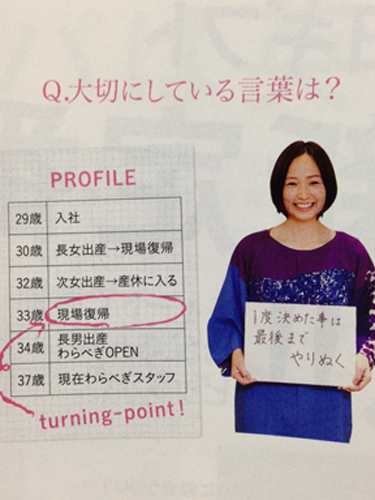 Q.大切にしている言葉は？
PROFILE
29歳 入社
30歳 長女出産→現場復帰
32歳 次女出産→産休に入る
33歳 現場復帰
34歳 長男出産
わらべぎOPEN
37歳 現在わらべぎスタッフ
turning-point!
1度決めた事は
最後まで
やりぬく